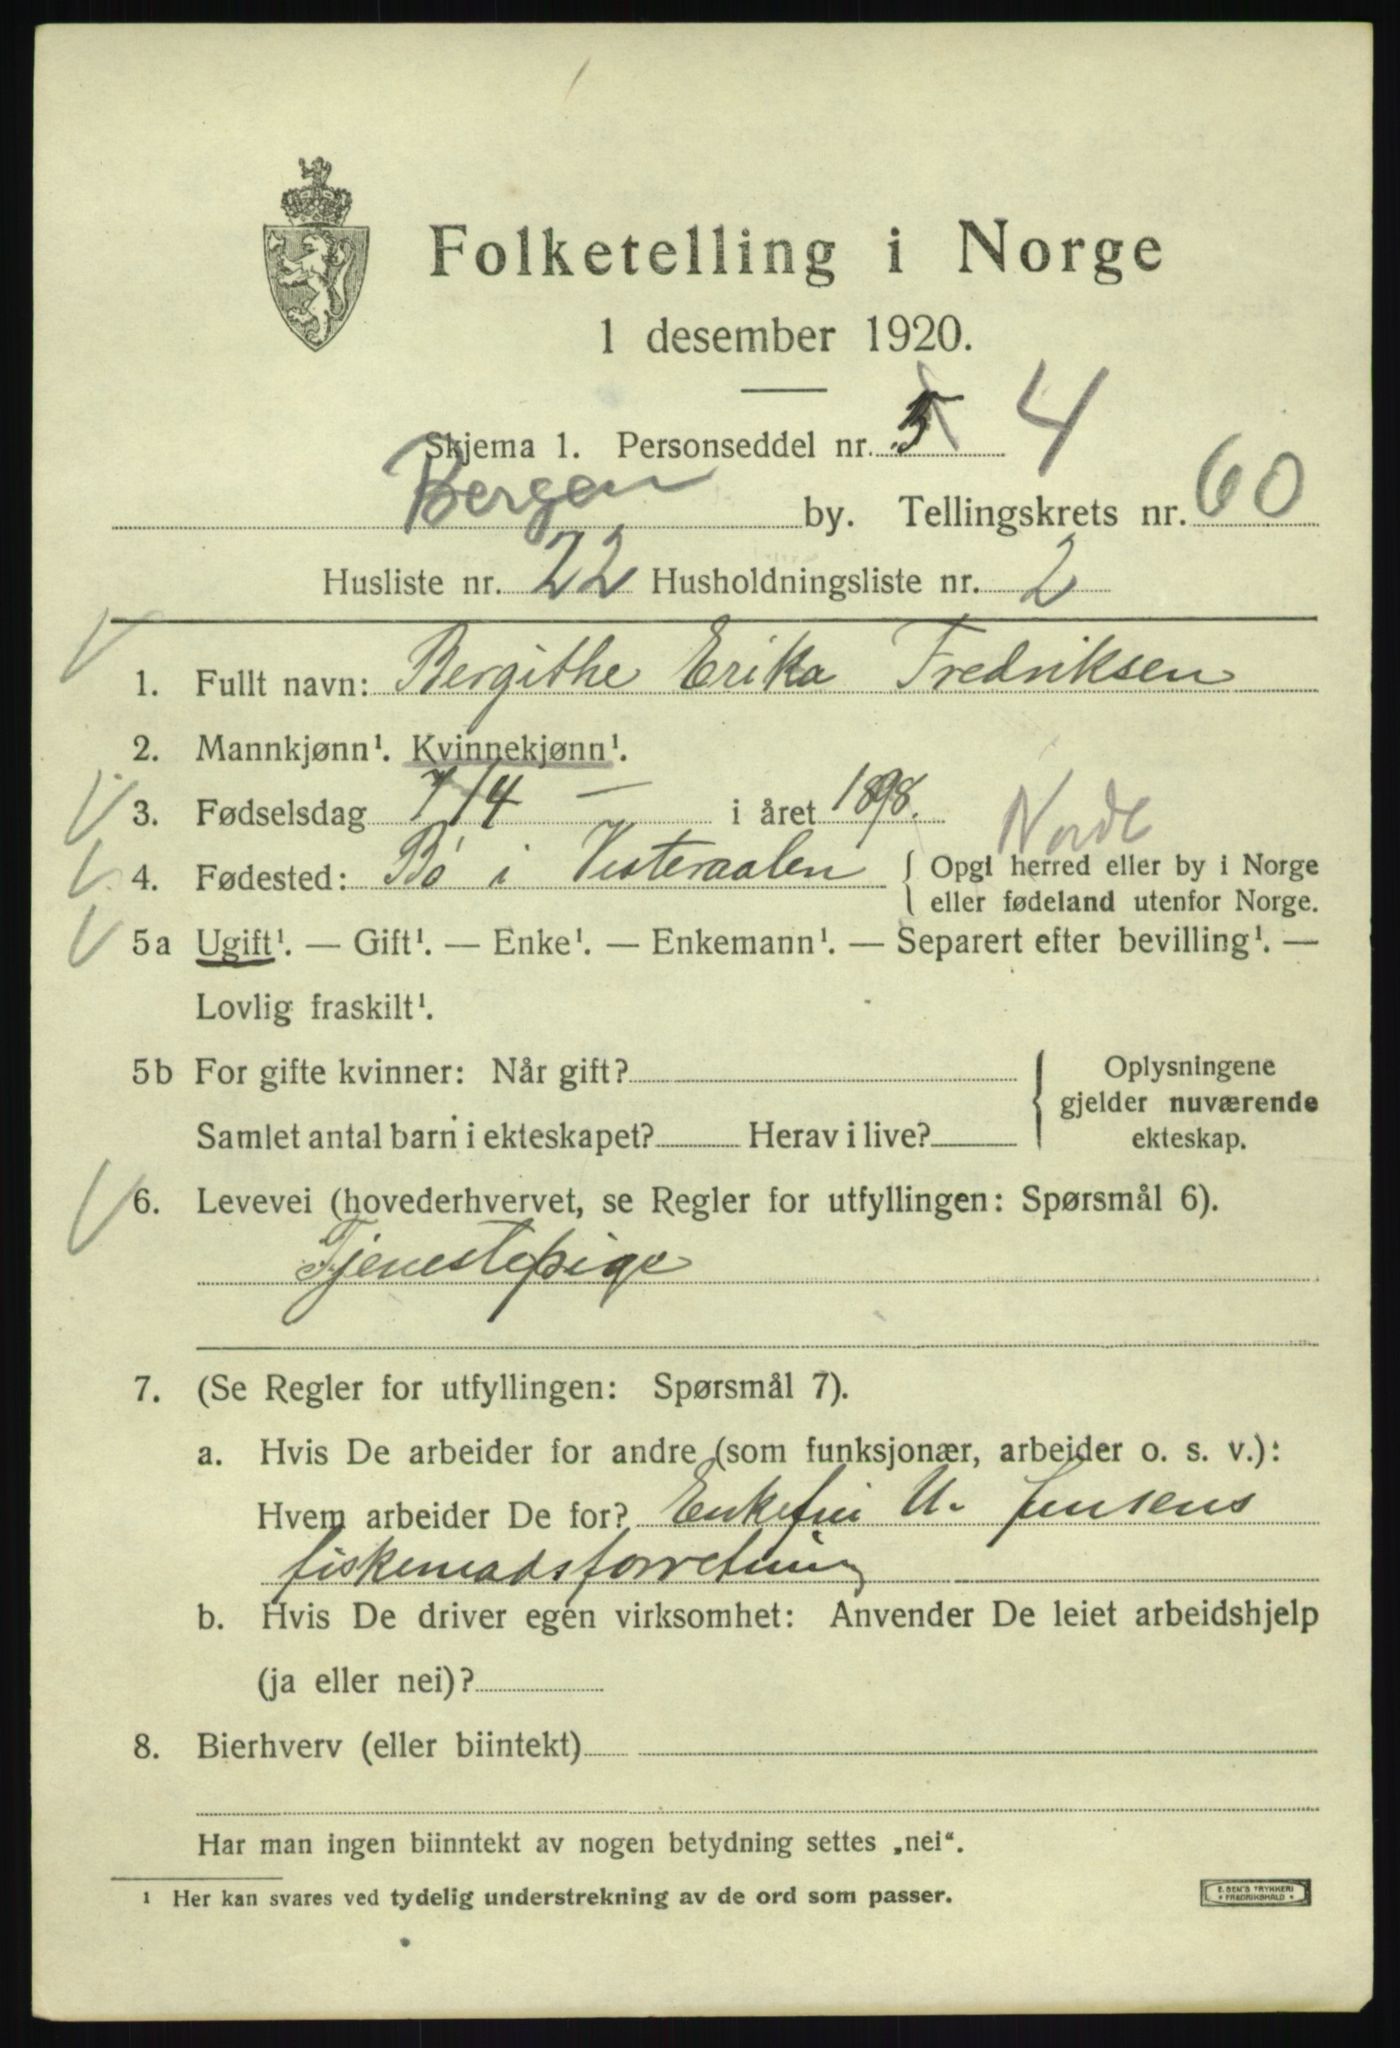 Folketelling i Norge
1 desember 1920.
Skjema 1. Personseddel nr. 4
Bergen by. Tellingskrets nr. 60
Husliste nr. 22 Husholdningsliste nr. 2
1. Fullt navn: Bergithe Erika Fredriksen
2. Mannkjønn¹. Kvinnekjønn¹.
3. Fødselsdag 7/4 — i året 1898.
Norde
4. Fødested: Bö i Vesteraalen { Opgi herred eller by i Norge
eller fødeland utenfor Norge.
5a Ugift¹. — Gift¹. — Enke¹. — Enkemann¹. — Separert efter bevilling¹. —
Lovlig fraskilt¹.
5b For gifte kvinner: Når gift?
Samlet antal barn i ekteskapet? Herav i live?
{ Oplysningene
gjelder nuværende
ekteskap.
6. Levevei (hovederhvervet, se Regler for utfyllingen: Spørsmål 6).
Tjenestepige
7. (Se Regler for utfyllingen: Spørsmål 7).
a. Hvis De arbeider for andre (som funksjonær, arbeider o. s. v.):
Hvem arbeider De for? Enkefru U. Jensens
fiskemadsforretning
b. Hvis De driver egen virksomhet: Anvender De leiet arbeidshjelp
(ja eller nei)?
8. Bierhverv (eller biintekt) —
Har man ingen biinntekt av nogen betydning settes „nei“.
¹ Her kan svares ved tydelig understrekning av de ord som passer.
E. SEM'S TRYKKERI
• FREDRIKSHALD •